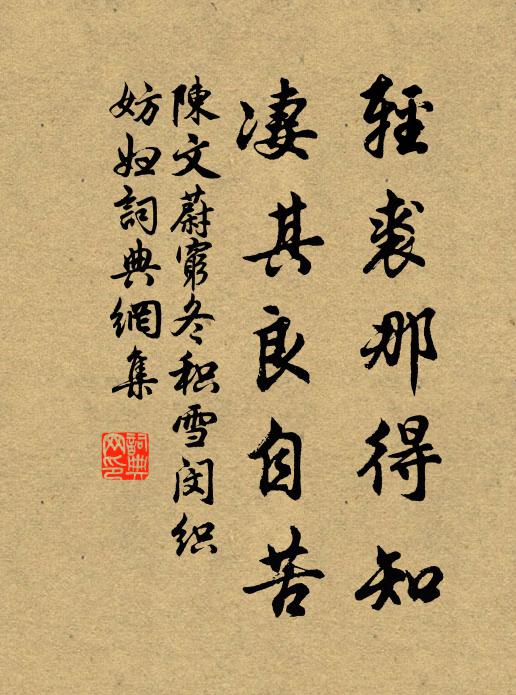 輕裘那得知
凄其良自苦
陳文蔚窮冬积雪闵织
妨妇詞典網集
詞典
网印